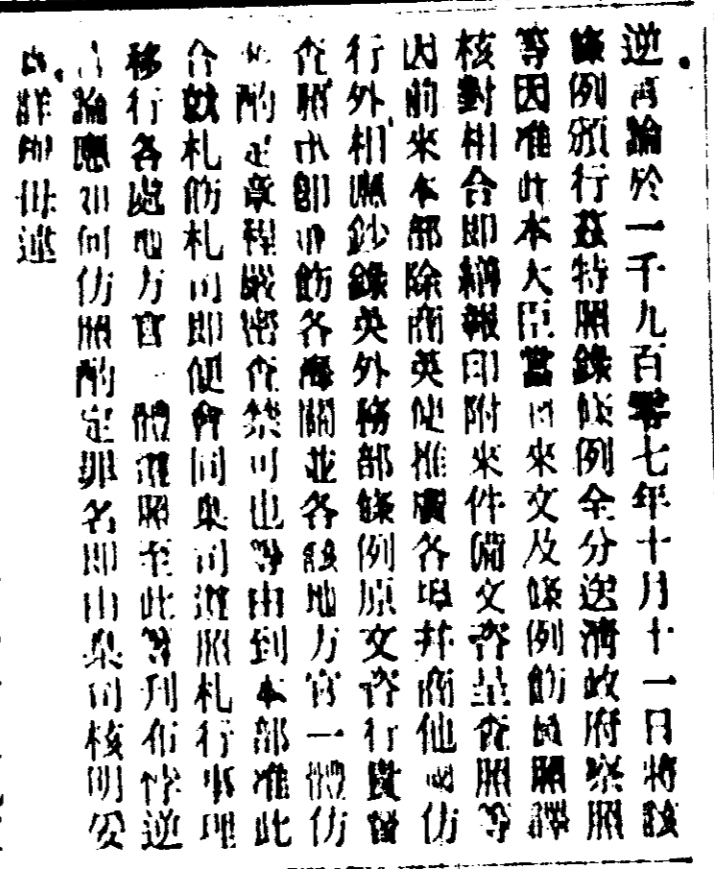 逆言論於一千九百零七年十月十一日將該
條例頒行茲特照錄條例全分送清政府察照
等因准此本大臣當將來文及條例飭員照譯
核對相合即繕報印附來件備文咨呈查照等
因前來本部除商英使推廣各埠并商他國仿
行外相應鈔錄英外務部條例原文咨行貴督
查照市即通飭各海關並各該地方官一體仿
照酌定章程嚴密查禁可也等由到本部准此
合就札飭札司即便會同臬司遵照札行事理
移行各處地方官一體遵照至此等刊布悖逆
言論應如何仿照酌定罪名即由臬司核明妥
議詳辦毋違